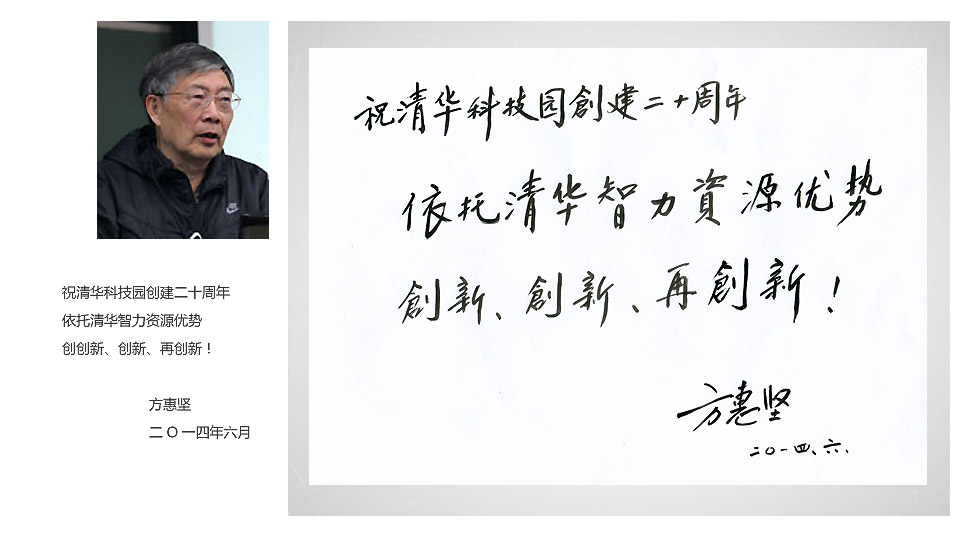 祝清华科技园创建二十周年
依托清华智力资源优势
创创新、创新、再创新！
方惠坚
二O一四年六月
祝清华科技园創建二十周年
依托清华智力資源优势
創新、創新、再創新！
方惠坚
二〇一四、六、